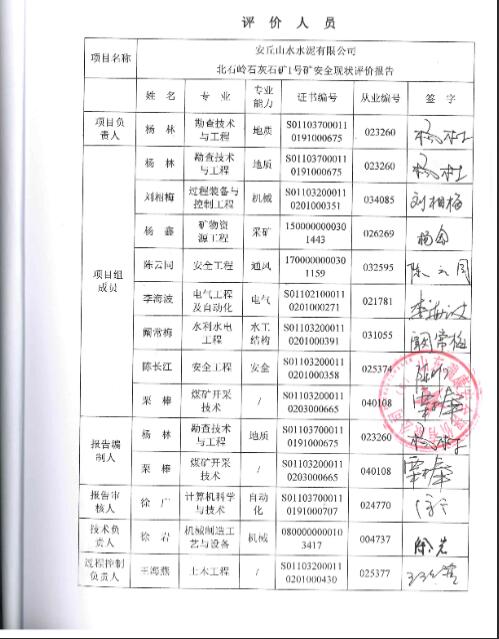 评价人员
项目名称
安丘山水水泥有限公司
北石岭石灰石矿1号矿安全现状评价报告
姓 名 专 业 专业能力 证书编号 从业编号 签 字
项目负责人 杨 林 勘查技术与工程 地质 S011037000110191000675 023260 杨林
项目组成员
杨 林 勘查技术与工程 地质 S011037000110191000675 023260 杨林
刘相梅 过程装备与控制工程 机械 S011032000110201000351 034085 刘相梅
杨 鑫 矿物资源工程 采矿 1500000000301443 026269 杨鑫
陈云同 安全工程 通风 1700000000301159 032595 陈云同
李海波 电气工程及自动化 电气 S011021000110201000271 021781 李海波
阚常梅 水利水电工程 水工结构 S011032000110201000391 031055 阚常梅
陈长江 安全工程 安全 S011032000110201000358 025374
栗 棒 煤矿开采技术 / S011032000110203000665 040108 栗棒
报告编制人
杨 林 勘查技术与工程 地质 S011037000110191000675 023260 杨林
栗 棒 煤矿开采技术 / S011032000110203000665 040108 栗棒
报告审核人 徐 广 计算机科学与技术 自动化 S011037000110191000707 024770 徐广
技术负责人 徐 岩 机械制造工艺与设备 机械 0800000000103417 004737 徐岩
过程控制负责人 王海燕 土木工程 / S011032000110201000430 025377